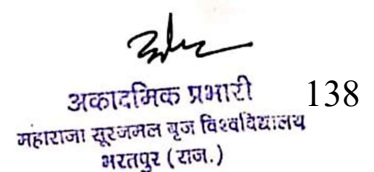 अकादमिक प्रभारी 138
महाराजा सूरजमल बृज विश्वविद्यालय
भरतपुर (राज.)